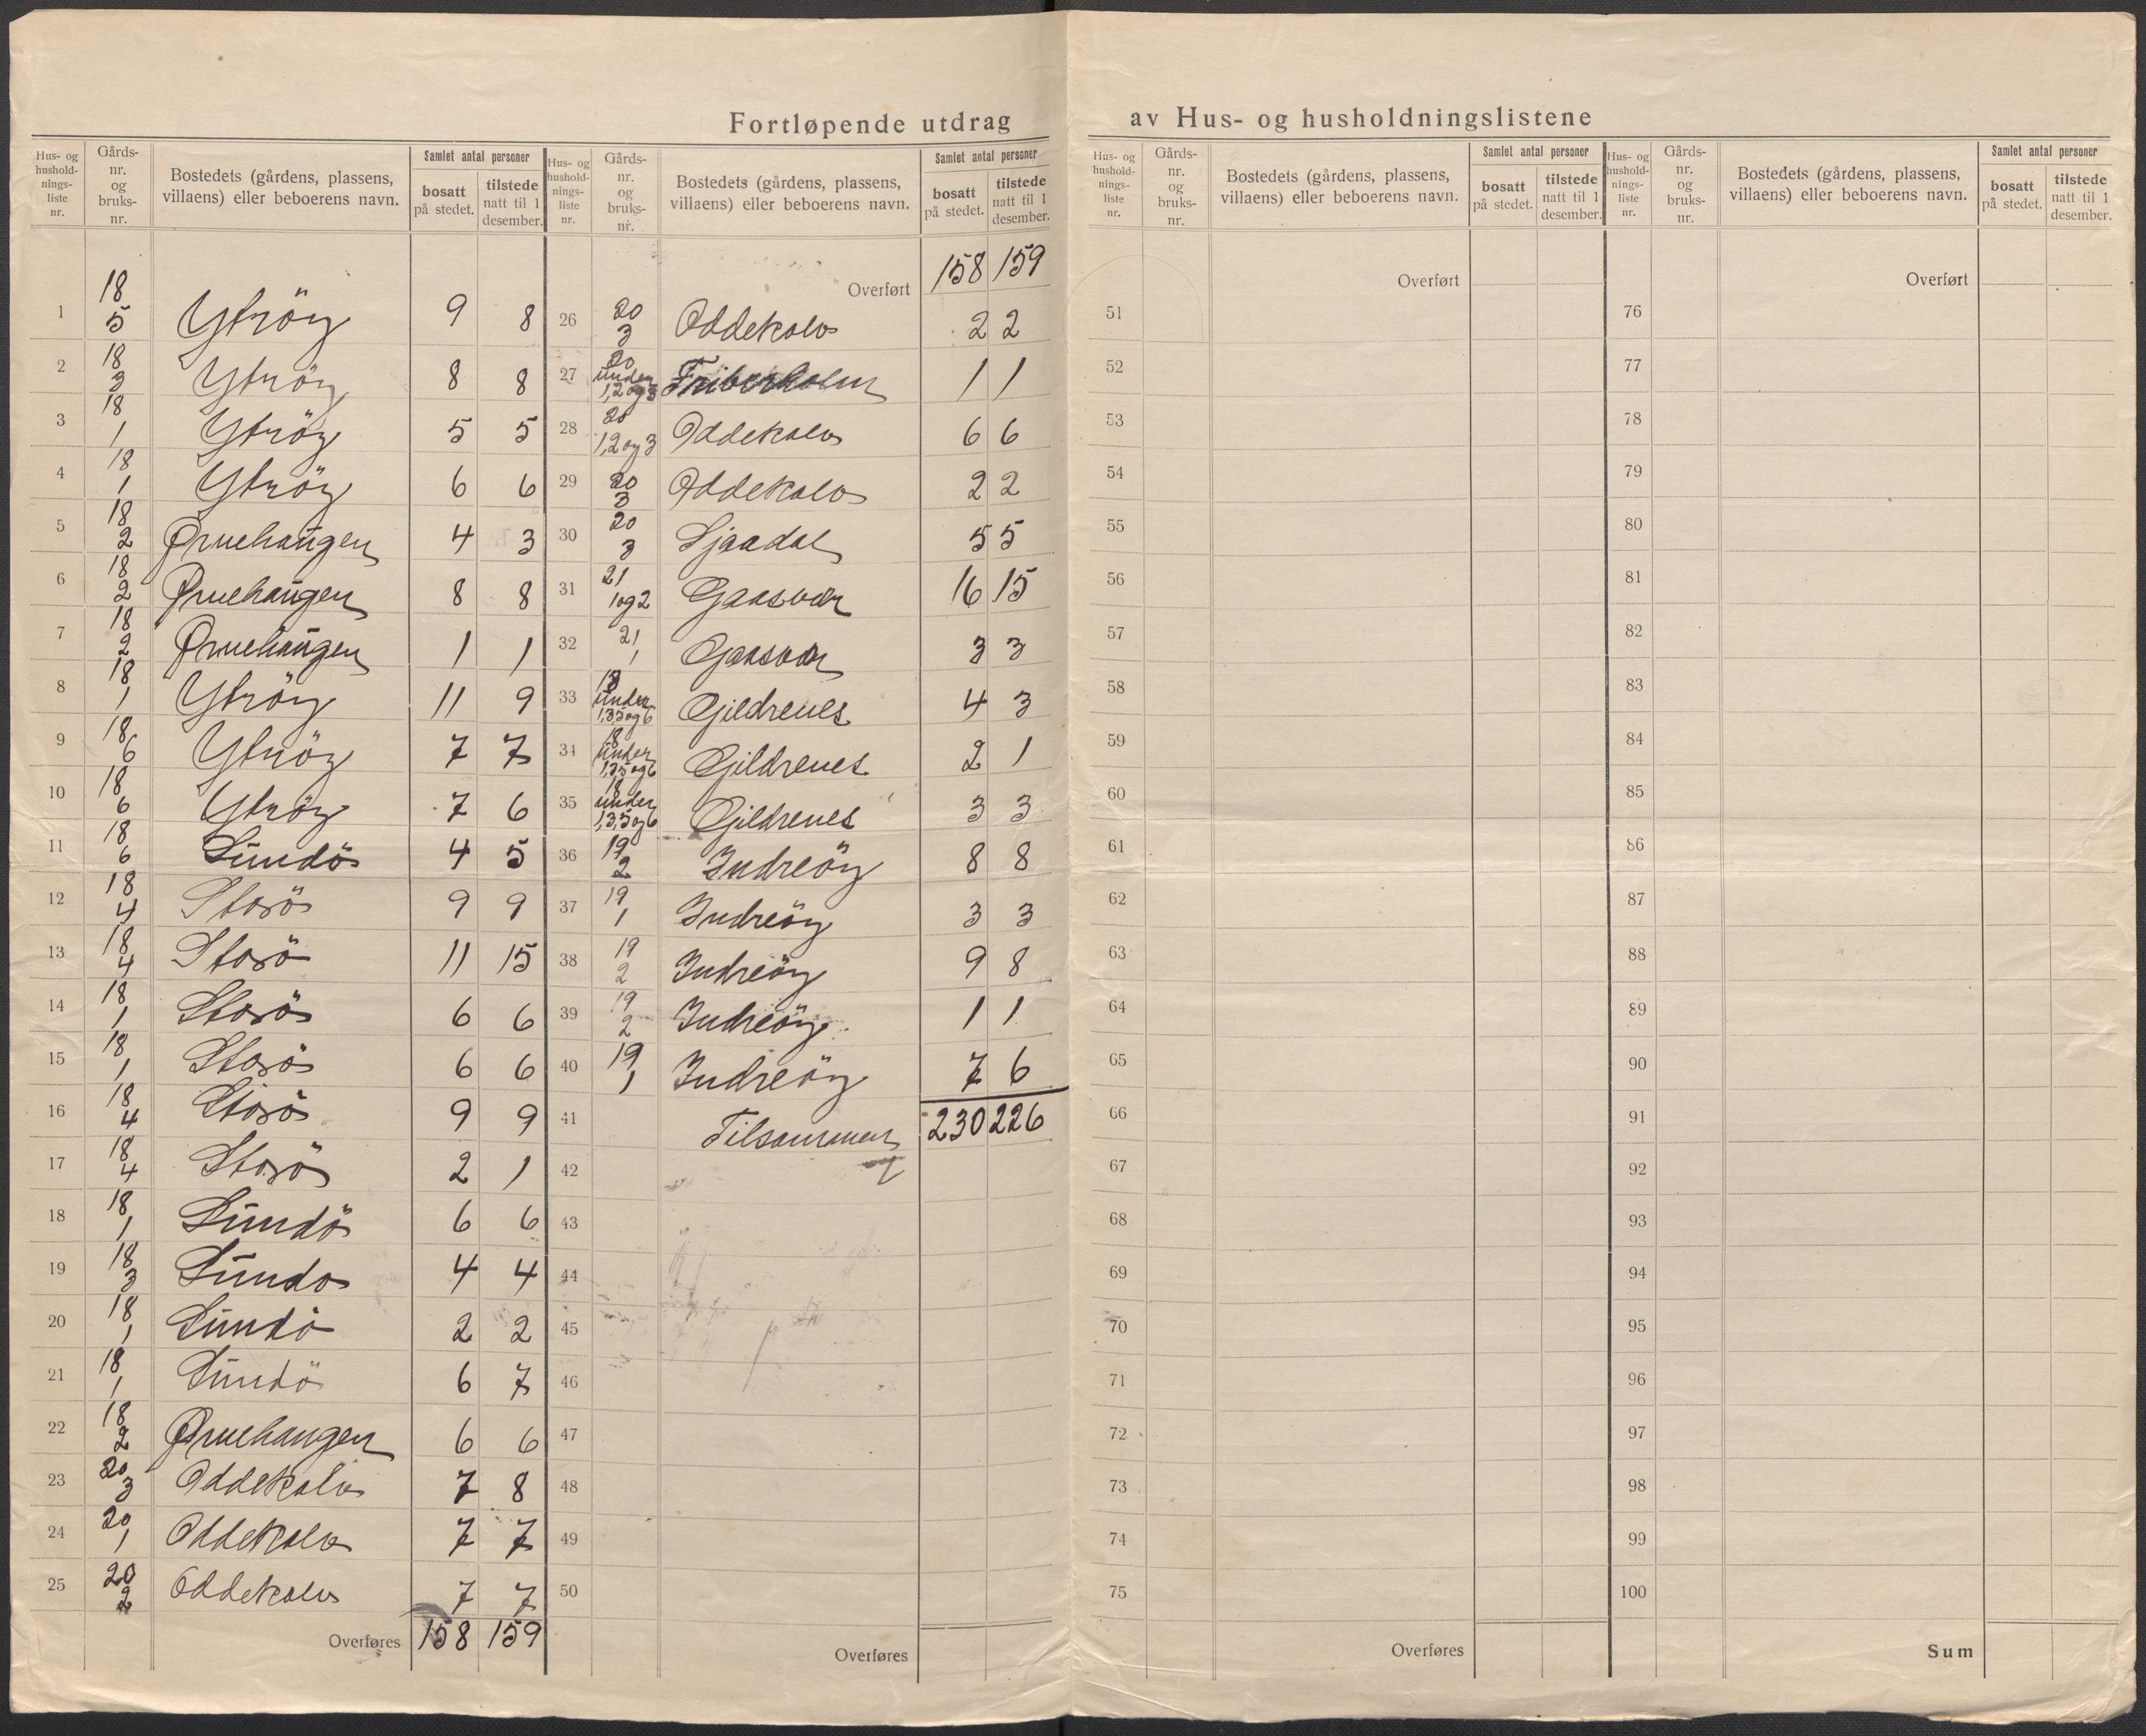 Fortløpende utdrag av Hus- og husholdningslistene
Hus- og husholdnings-liste nr.
Gårds-nr. og bruks-nr.
Bostedets (gårdens, plassens, villaens) eller beboerens navn.
Samlet antal personer
bosatt på stedet.
tilstede natt til 1 desember.
1 18 5 Ytröy 9 8
2 18 3 Ytröy 8 8
3 18 1 Ytröy 5 5
4 18 1 Ytröy 6 6
5 18 2 Ørnehaugen 4 3
6 18 2 Ørnehaugen 8 8
7 18 2 Ørnehaugen 1 1
8 18 1 Ytröy 11 9
9 18 6 Ytröy 7 7
10 18 6 Ytröy 7 6
11 18 6 Sundö 4 5
12 18 4 Storö 9 9
13 18 4 Storö 11 15
14 18 1 Storö 6 6
15 18 1 Storö 6 6
16 18 4 Storö 9 9
17 18 4 Storö 2 1
18 18 1 Sundö 6 6
19 18 3 Sundo 4 4
20 18 1 Sundö 2 2
21 18 1 Sundö 6 7
22 18 2 Ørnehaugen 6 6
23 20 3 Oddekalv 7 8
24 20 1 Oddekalv 7 7
25 20 2 Oddekalv 7 7
Overføres 158 159
Hus- og husholdnings-liste nr.
Gårds-nr. og bruks-nr.
Bostedets (gårdens, plassens, villaens) eller beboerens navn.
Samlet antal personer
bosatt på stedet.
tilstede natt til 1 desember.
Overført 158 159
26 20 3 Oddekalv 2 2
27 20 under 1,2 og 3 Friborholm 1 1
28 20 1,2 og 3 Oddekalv 6 6
29 20 3 Oddekalv 2 2
30 20 3 Sjaadal 5 5
31 21 1 og 2 Gaasvær 16 15
32 21 1 Gaasvær 3 3
33 18 under 1,3,5 og 6 Gjeldrenes 4 3
34 18 under 1,3,5 og 6 Gjildrenes 2 1
35 18 under 1,3,5 og 6 Gjildrenes 3 3
36 19 2 Indreöy 8 8
37 19 1 Indreöy 3 3
38 19 2 Indreöy 9 8
39 19 2 Indreöy 1 1
40 19 1 Indreöy 7 6
41 Tilsammen 230 226
42
43
44
45
46
47
48
49
50
Overføres
Hus- og husholdnings-liste nr.
Gårds-nr. og bruks-nr.
Bostedets (gårdens, plassens, villaens) eller beboerens navn.
Samlet antal personer
bosatt på stedet.
tilstede natt til 1 desember.
Overført
51
52
53
54
55
56
57
58
59
60
61
62
63
64
65
66
67
68
69
70
71
72
73
74
75
Overføres
Hus- og husholdnings-liste nr.
Gårds-nr. og bruks-nr.
Bostedets (gårdens, plassens, villaens) eller beboerens navn.
Samlet antal personer
bosatt på stedet.
tilstede natt til 1 desember.
Overført
76
77
78
79
80
81
82
83
84
85
86
87
88
89
90
91
92
93
94
95
96
97
98
99
100
Sum